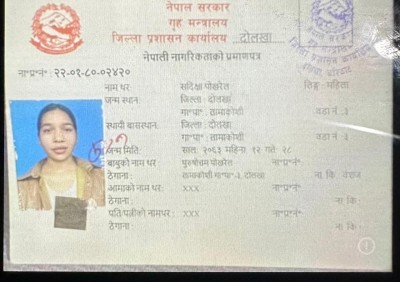 नेपाल सरकार
गृह मन्त्रालय
जिल्ला प्रशासन कार्यालय दोलखा
नेपाली नागरिकताको प्रमाणपत्र
ना॰प्र॰नं॰ : २२-०१-८०-०२४२०
नाम थर : सदिक्षा पोखरेल लिङ्ग : महिला
जन्म स्थान : जिल्ला : दोलखा
गा॰पा॰ : तामाकोशी वडा नं : ३
स्थायी बासस्थान : जिल्ला : दोलखा
गा॰पा॰ : तामाकोशी वडा नं : ३
जन्म मिति : साल: २०६३ महिना: १२ गते: २८
बाबुको नाम थर : पुरुषोत्तम पोखरेल ना॰प्र॰नं॰ :
ठेगाना : तामाकोशी गा॰पा॰-३, दोलखा ना. कि. वंशज
आमाको नाम थर : xxx ना॰प्र॰नं॰ :
ठेगाना : ना. कि. :
पति/पत्नीको नामथर : xxx ना॰प्र॰नं॰ :
ठेगाना : ना. कि. :